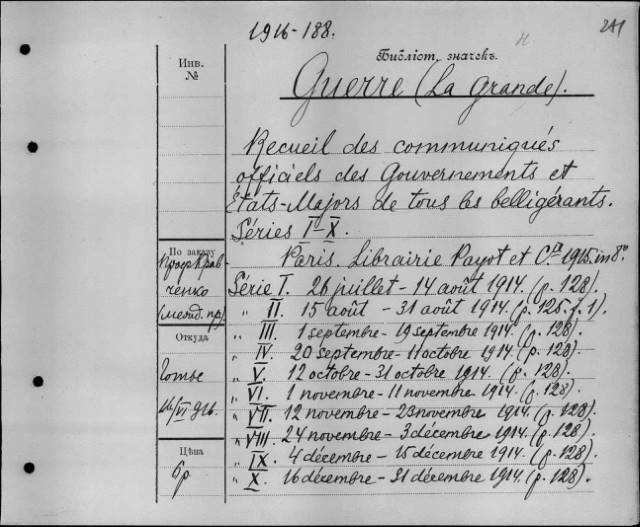 1916-188.
241
Библіот. значекъ.
Инв.
№
Guerre (La Grande).
Recueil des communiqués
officiels des Gouvernements et
États-Majors de tous les belligérants.
Séries I-X.
Paris. Librairie Payot et C.ie 1915. in 8°
По заказу
Проф Крав-
ченко
Série I. 26 juillet - 14 août 1914. (p. 128).
" II. 15 août - 31 août 1914. (p. 125. f. 1).
" III. 1 septembre - 19 septembre 1914. (p. 128).
" IV. 20 septembre - 11 octobre 1914. (p. 128).
" V. 12 octobre - 31 octobre 1914. (p. 128).
" VI. 1 novembre - 11 novembre 1914. (p. 128).
" VII. 12 novembre - 23 novembre 1914. (p. 128).
" VIII. 24 novembre - 3 décembre 1914. (p. 128).
" IX. 4 décembre - 15 décembre 1914. (p. 128).
" X. 16 décembre - 31 décembre 1914. (p. 128).
Откуда
Готье
Цѣна
6р